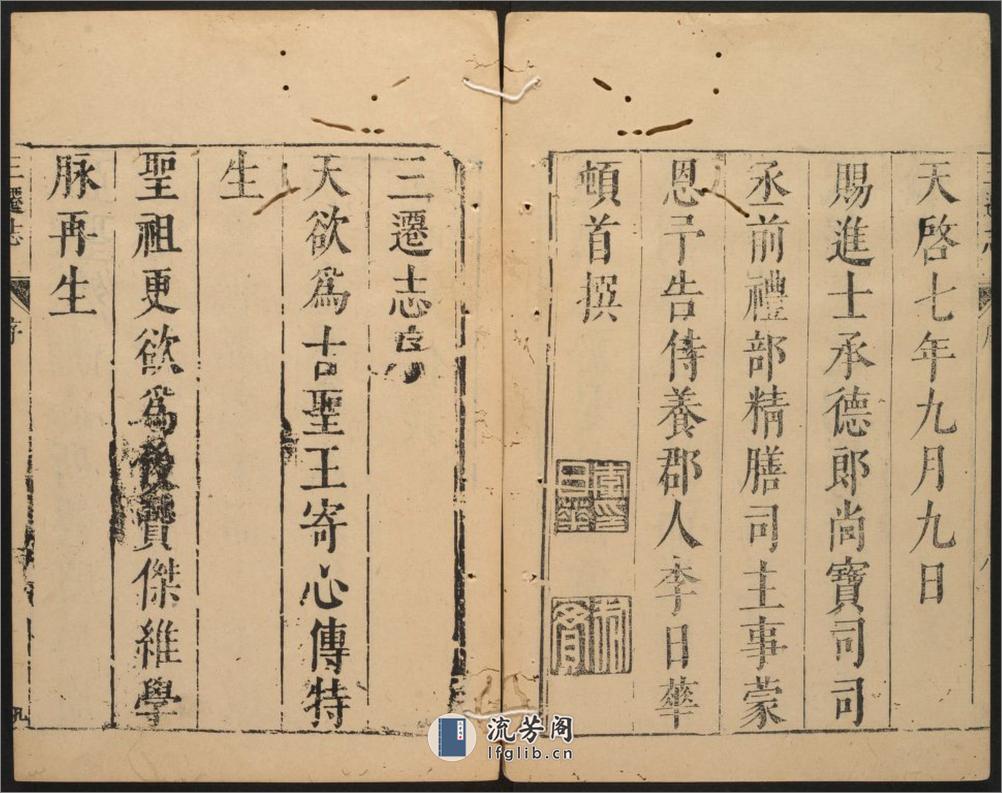 天啓七年九月九日
賜進士承德郎尚寶司司
丞前禮部精膳司主事蒙
恩予告侍養郡人李日華
頓首撰
三遷志序
天欲爲古聖王寄心傳特
生
聖祖更欲爲後賢傑維學
脉再生
三遷志
序
流芳阁
lfglib.cn